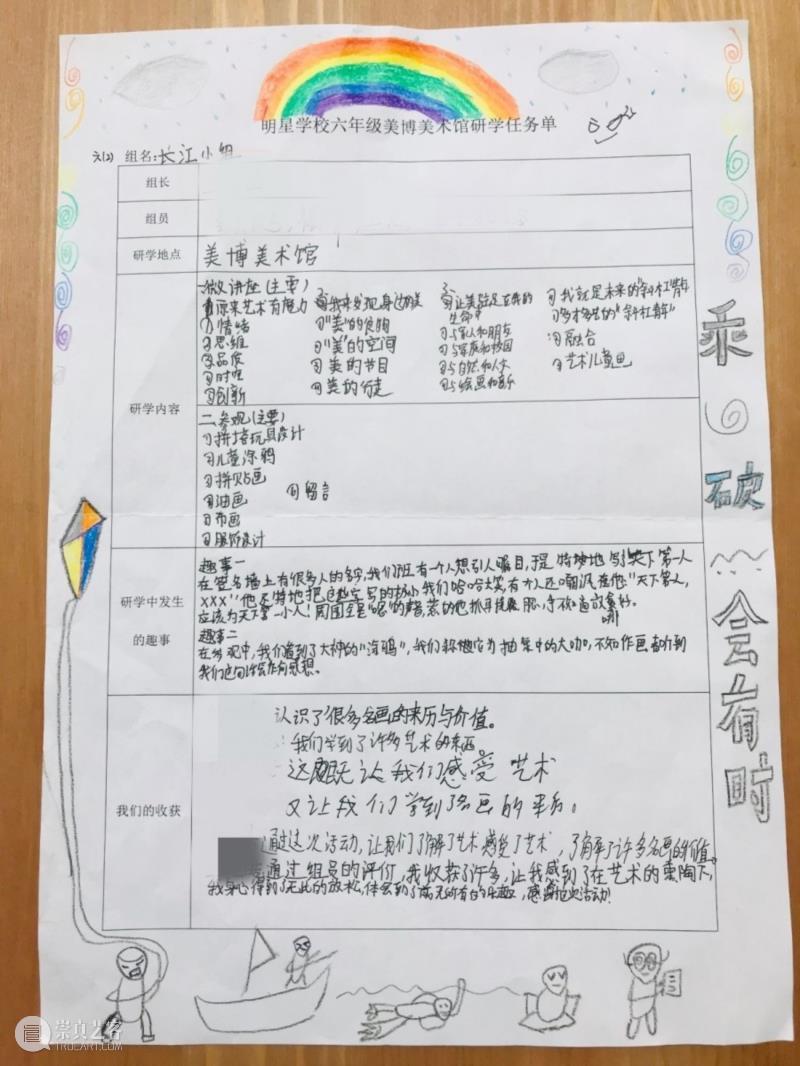 明星学校六年级美博美术馆研学任务单
六(2) 组名:长江小组
组长
组员
研学地点
美博美术馆
研学内容
一、微讲座(主要)
原来艺术有魅力
情绪
思维
品质
时代
创新
我来发现身边的美
"美"的食物
"美"的空间
美的节日
美的行走
让美驻足在我的
生命中
与家人和朋友
与家庭和校园
与自然和人文
与绘画和音乐
我就是未来的"斜杠"青年
多才多艺的"斜杠青年"
融合
艺术儿童画
二、参观(主要)
拼搭玩具设计
儿童涂鸦
拼贴画
油画
布画
服饰设计
留言
研学中发生
的趣事
趣事一
在签名墙上有很多人的名字,我们班有一个人想引人瞩目,于是特地写了"天下第一人
XXX"他还特地把这些字写的很小我们哈哈大笑,有个人还嘲讽 他:"天下第一人,
应该为天下第一小人!周围
趣事二
在参观中,我们看到了大神的"涂鸦",我们称它为抽象中的大咖,不知作画者听到
我们这句话会作何感想。
我们的收获
认识了很多名画的来历与价值。
我们学到了许多艺术的东西
这既让我们感受艺术
又让我们学到名画的来历。
通过这次活动,让我们了解了艺术感受了艺术,了解了许多名画的价值。
通过组员的评价,我收获了许多,让我感到了在艺术的熏陶下,
我身心得到了无比的放松,体会到了前无所有的乐趣,感谢这次活动!
乘
破
会有时
崇真艺客